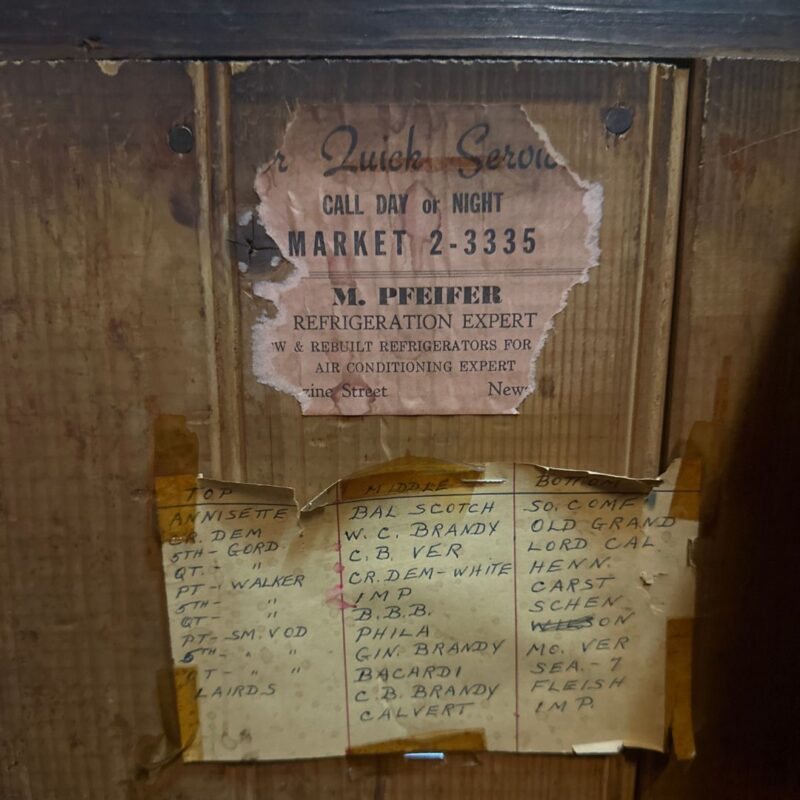 r Quick Servic
CALL DAY or NIGHT
MARKET 2-3335
M. PFEIFER
REFRIGERATION EXPERT
W & REBUILT REFRIGERATORS FOR
AIR CONDITIONING EXPERT
zine Street New
TOP
ANNISETTE
CR. DEM
5TH - GORD
QT. - "
PT - WALKER
5TH - "
QT - "
PT - SM. VOD
5TH - " "
QT - " "
LAIRDS
MIDDLE
BAL SCOTCH
W. C. BRANDY
C. B. VER
CR. DEM - WHITE
IMP
B.B.B.
PHILA
GIN. BRANDY
BACARDI
C. B. BRANDY
CALVERT
BOTTOM
SO. COMF
OLD GRAND
LORD CAL
HENN.
CARST
SCHEN
WILSON
MO. VER
SEA. - 7
FLEISH
IMP.